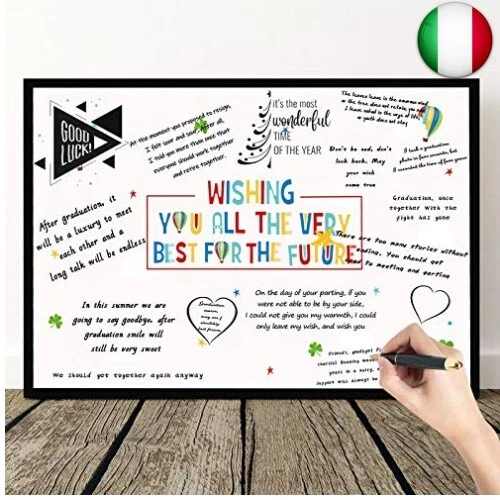 GOOD
LUCK!
At the moment you proposed to resign,
I felt sour and sour. After all,
I told you more than once that
everyone should work together
and retire together.
it's the most
wonderful
TIME
OF THE YEAR
Don't be sad, don't
look back, May
your wish
come true
I took a graduation
Graduation, once
together with the
fight has gone
After graduation, it
will be a luxury to meet
each other and a
long talk will be endless
WISHING
YOU ALL THE VERY
BEST FOR THE FUTURE
There are too many stories without
ending, You should get
to meeting and parting
In this summer we are
going to say goodbye, after
graduation smile will
still be very sweet
Graduation
season,
may our f
On the day of your parting, if you
were not able to be by your side,
I could not give you my warmth, I could
only leave my wish, and wish you
Friends, goodbye!
We should get together again anyway